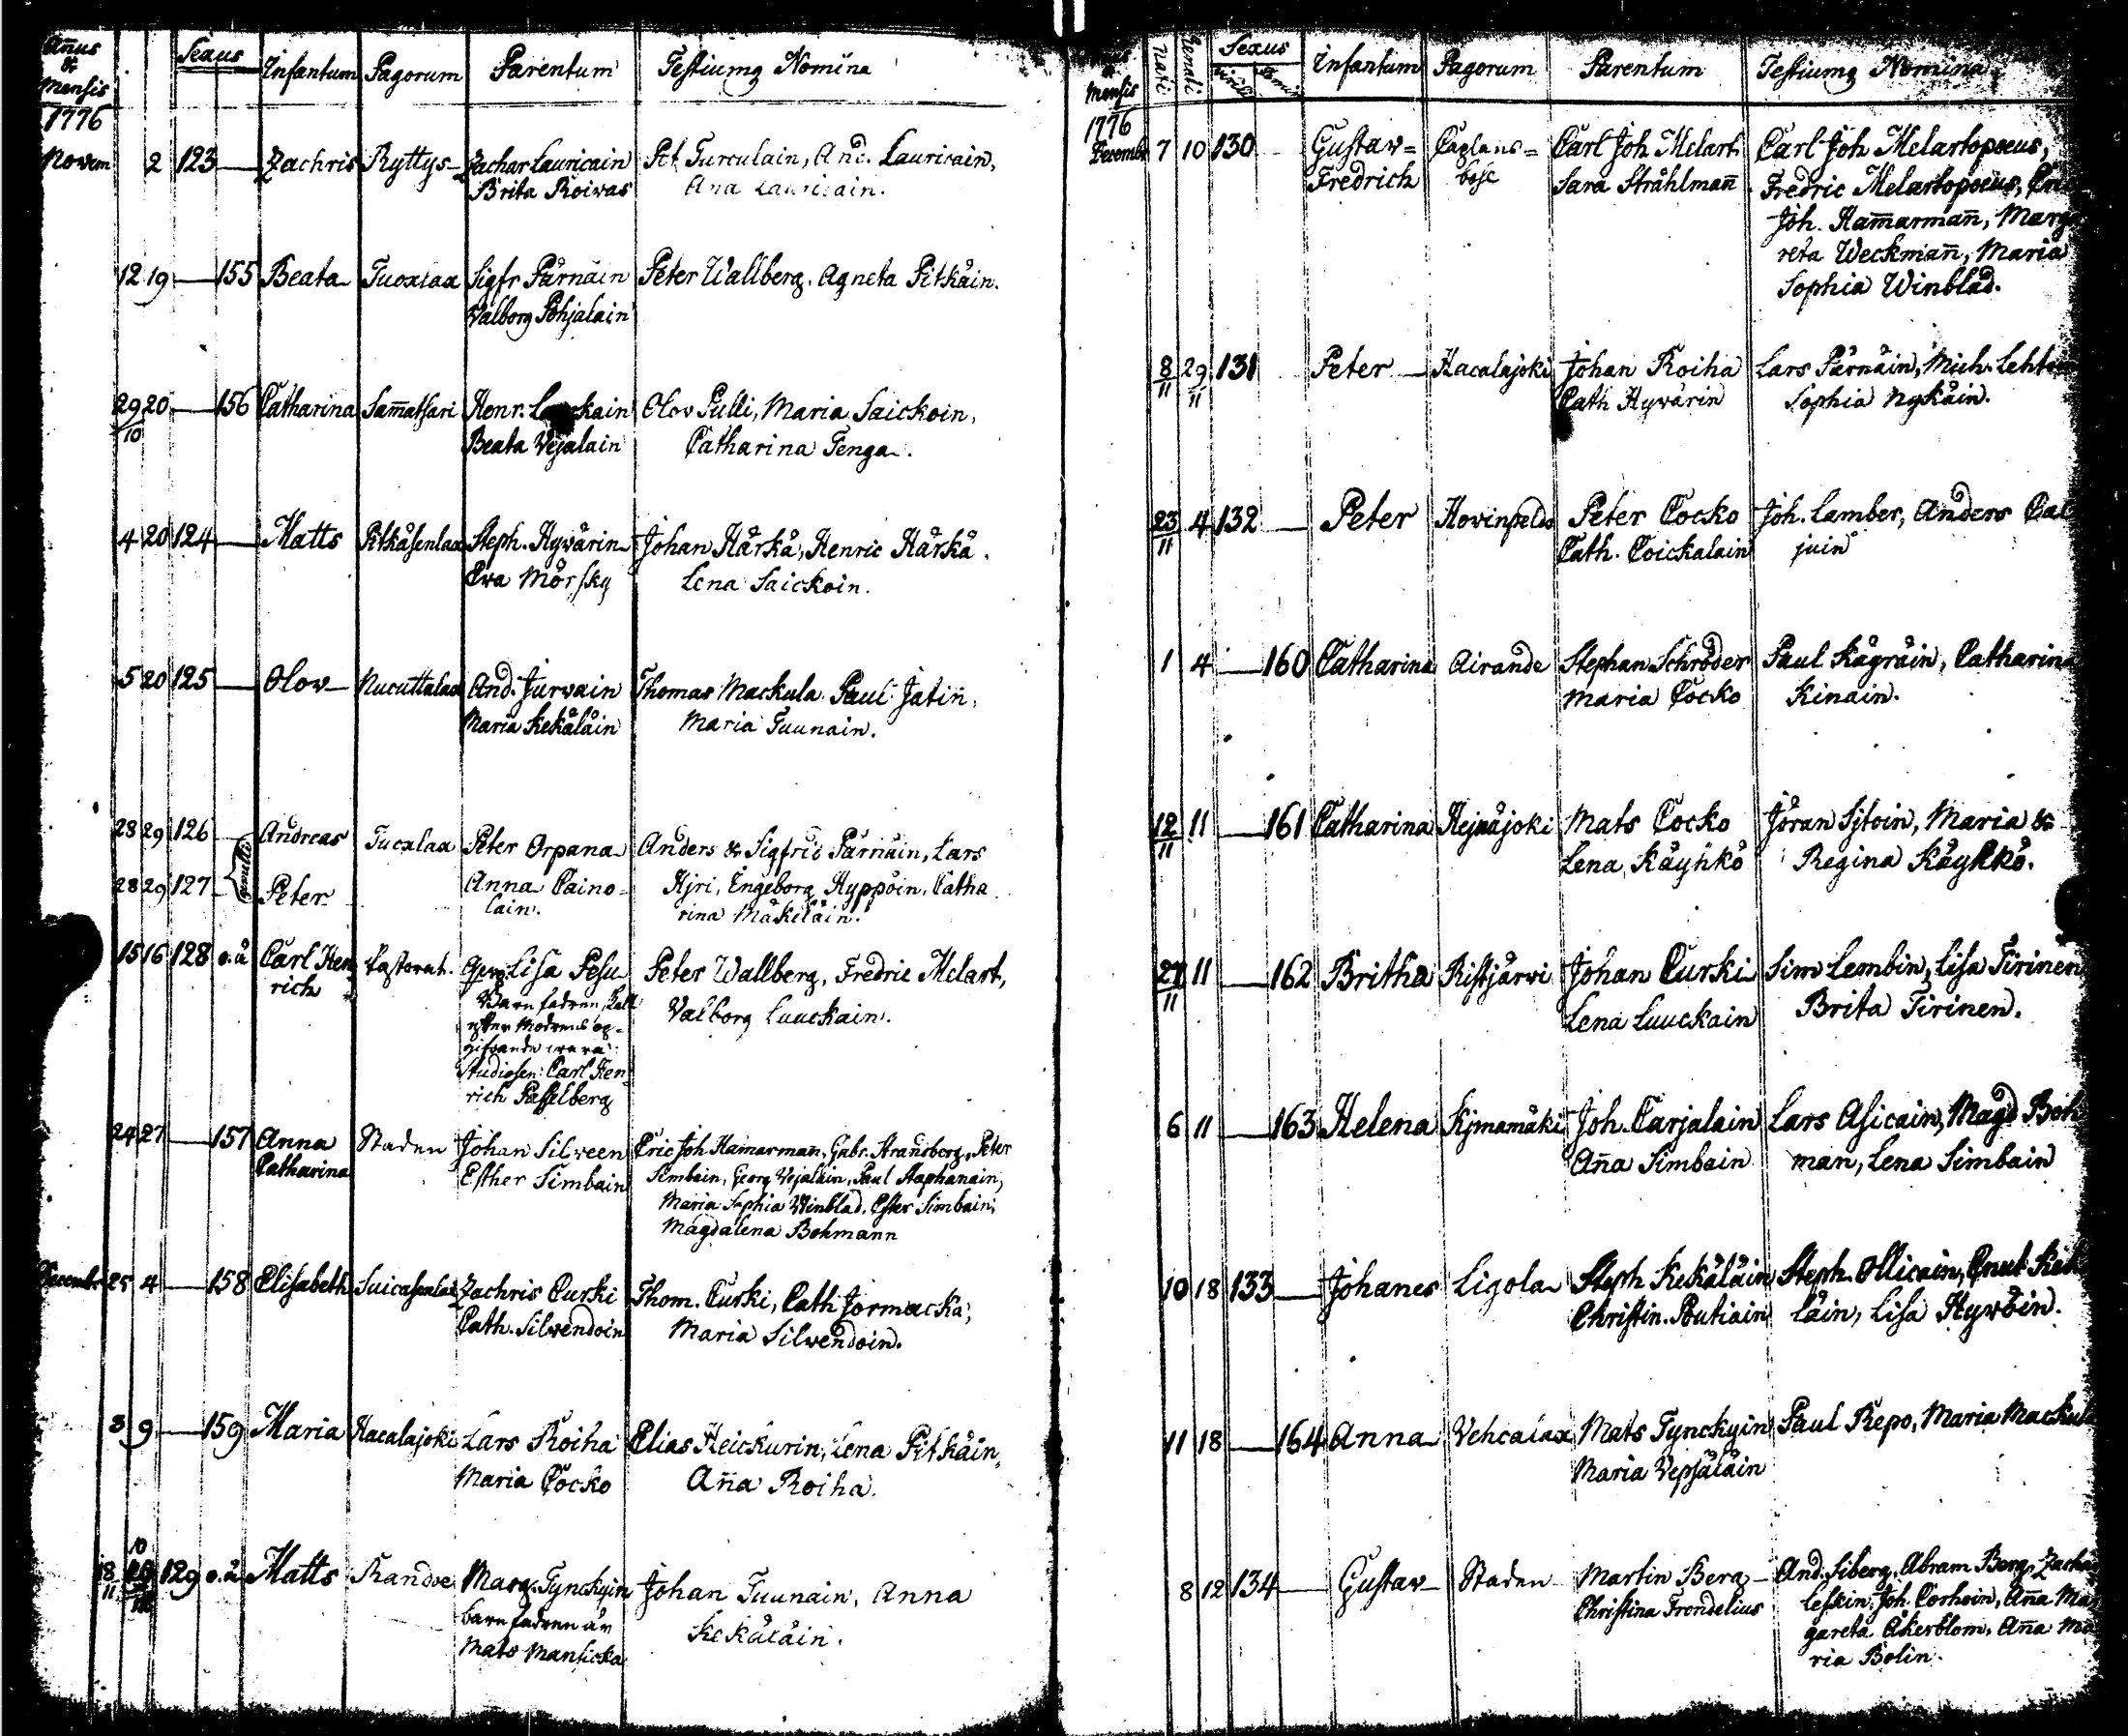 Añus
&
Mensis
Sexus
Infantum Pagorum Parentum Testiumq Nomina
1776
Novem 2 123 — Zachris Ryttys Zachar Lauricain Pet Turculain, And. Lauricain,
Brita Roivas Ana Lauricain.
12 19 — 155 Beata Tuoxlax Sigfr Pärnäin Peter Wallberg. Agneta Pitkäin.
Walborg Pohjalain
29/10 20 — 156 Catharina Sam̄atsari Henr. Olov Pulli, Maria Saickoin,
Beata Vejalain Catharina Tenga.
4 20 124 — Matts Pitkäsenlax Steph. Hyvärin Johan Härkä, Henric Härkä.
Eva Mörsky Lena Saickoin.
5 20 125 — Olov Nucuttalax And. Jurvain Thomas Mackula Paul Jatiñ,
Maria Kekäläin Maria Tuunain.
28 29 126 — Andreas Tucxlax Peter Orpana Anders & Sigfrid Pärnäin, Lars
gemelli
28 29 127 — Peter Anna Caino- Hjri, Engeborg Hyppöin, Catha
lain. rina Mäkeläin.
15 16 128 o.ä Carl Hen Pastorat. Lisa Pesu Peter Wallberg, Fredric Melart,
rich Barnfadren skall Valborg Luuckain.
efter Modrens op-
gifvande wara
Studiosen: Carl Hen
rich Passelberg
24 27 — 157 Anna Staden Johan Silveen Eric Joh Hamarmañ, Gabr. Strandberg, Peter
Catharina Esther Simbain Simbain, Georg Vejalain, Paul Staphanain,
Maria Sophia Winblad, Ester Simbain,
Magdalena Bohmann
Decembr 25 4 — 158 Elisabeth Suicasalax Zachris Curki Thom. Curki, Cath Jormacka,
Cath. Silvendoin Maria Silvendoin.
3 9 — 159 Maria Hacalajoki Lars Roiha Elias Heickurin, Lena Pitkäin,
Maria Cocko Aña Roiha.
18/11 10 129 o.ä Matts Randue Marg. Tynckyin Johan Tuunain, Anna
barnfadren är Kekäläin.
Mats Manticka
Mensis
Nati
Renati
Sexus
Infantum Pagorum Parentum Testiumq Nomina
1776
Decembr 7 10 130 — Gustav= Caplans= Carl Joh Melart. Carl Joh Melartopoeus,
Fredrich böle Sara Stråhlmañ Fredric Melartopoeus,
Joh. Ham̄armañ, Marga
reta Weckmañ, Maria
Sophia Winblad.
8/11 29/11 131 Peter — Hacalajoki Johan Roiha Lars Pärnäin, Mich. Lehto
Cath Hyvärin Sophia Nykäin.
23/11 4 132 — Peter Hovinpelds Peter Cocko Joh. Lamber, Anders Cac
Cath. Coickalain juin
1 4 — 160 Catharina Airande Stephan Schröder Paul Kägräin, Catharina
Maria Cocko Kinain.
12/11 11 — 161 Catharina Hejnäjoki Mats Cocko Jöran Sitoin, Maria &
Lena Käyhkö Regina Käyhkö.
27/11 11 — 162 Britha Ristjärvi Johan Curki Sim Lembin, Lisa Tirinen
Lena Luuckain Brita Tirinen.
6 11 — 163 Helena Kjmamäki Joh. Carjalain Lars Asicain, Magd Boh
Aña Simbain man, Lena Simbain
10 18 133 — Johanes Ligola Steph Kekäläin Steph. Ollicain, Cnut Kek
Christin. Poutiain läin, Lisa Hyvöin.
11 18 — 164 Anna Vehcalax Mats Tynckyin Paul Repo, Maria Mackul
Maria Vepsäläin
8 12 134 — Gustav Staden Martin Berg And. Siberg, Abram Berg, Zachar
Christina Trondelius Leskin, Joh. Corhoin, Aña Mar
gareta Åkerblom, Aña Ma
ria Bolin.